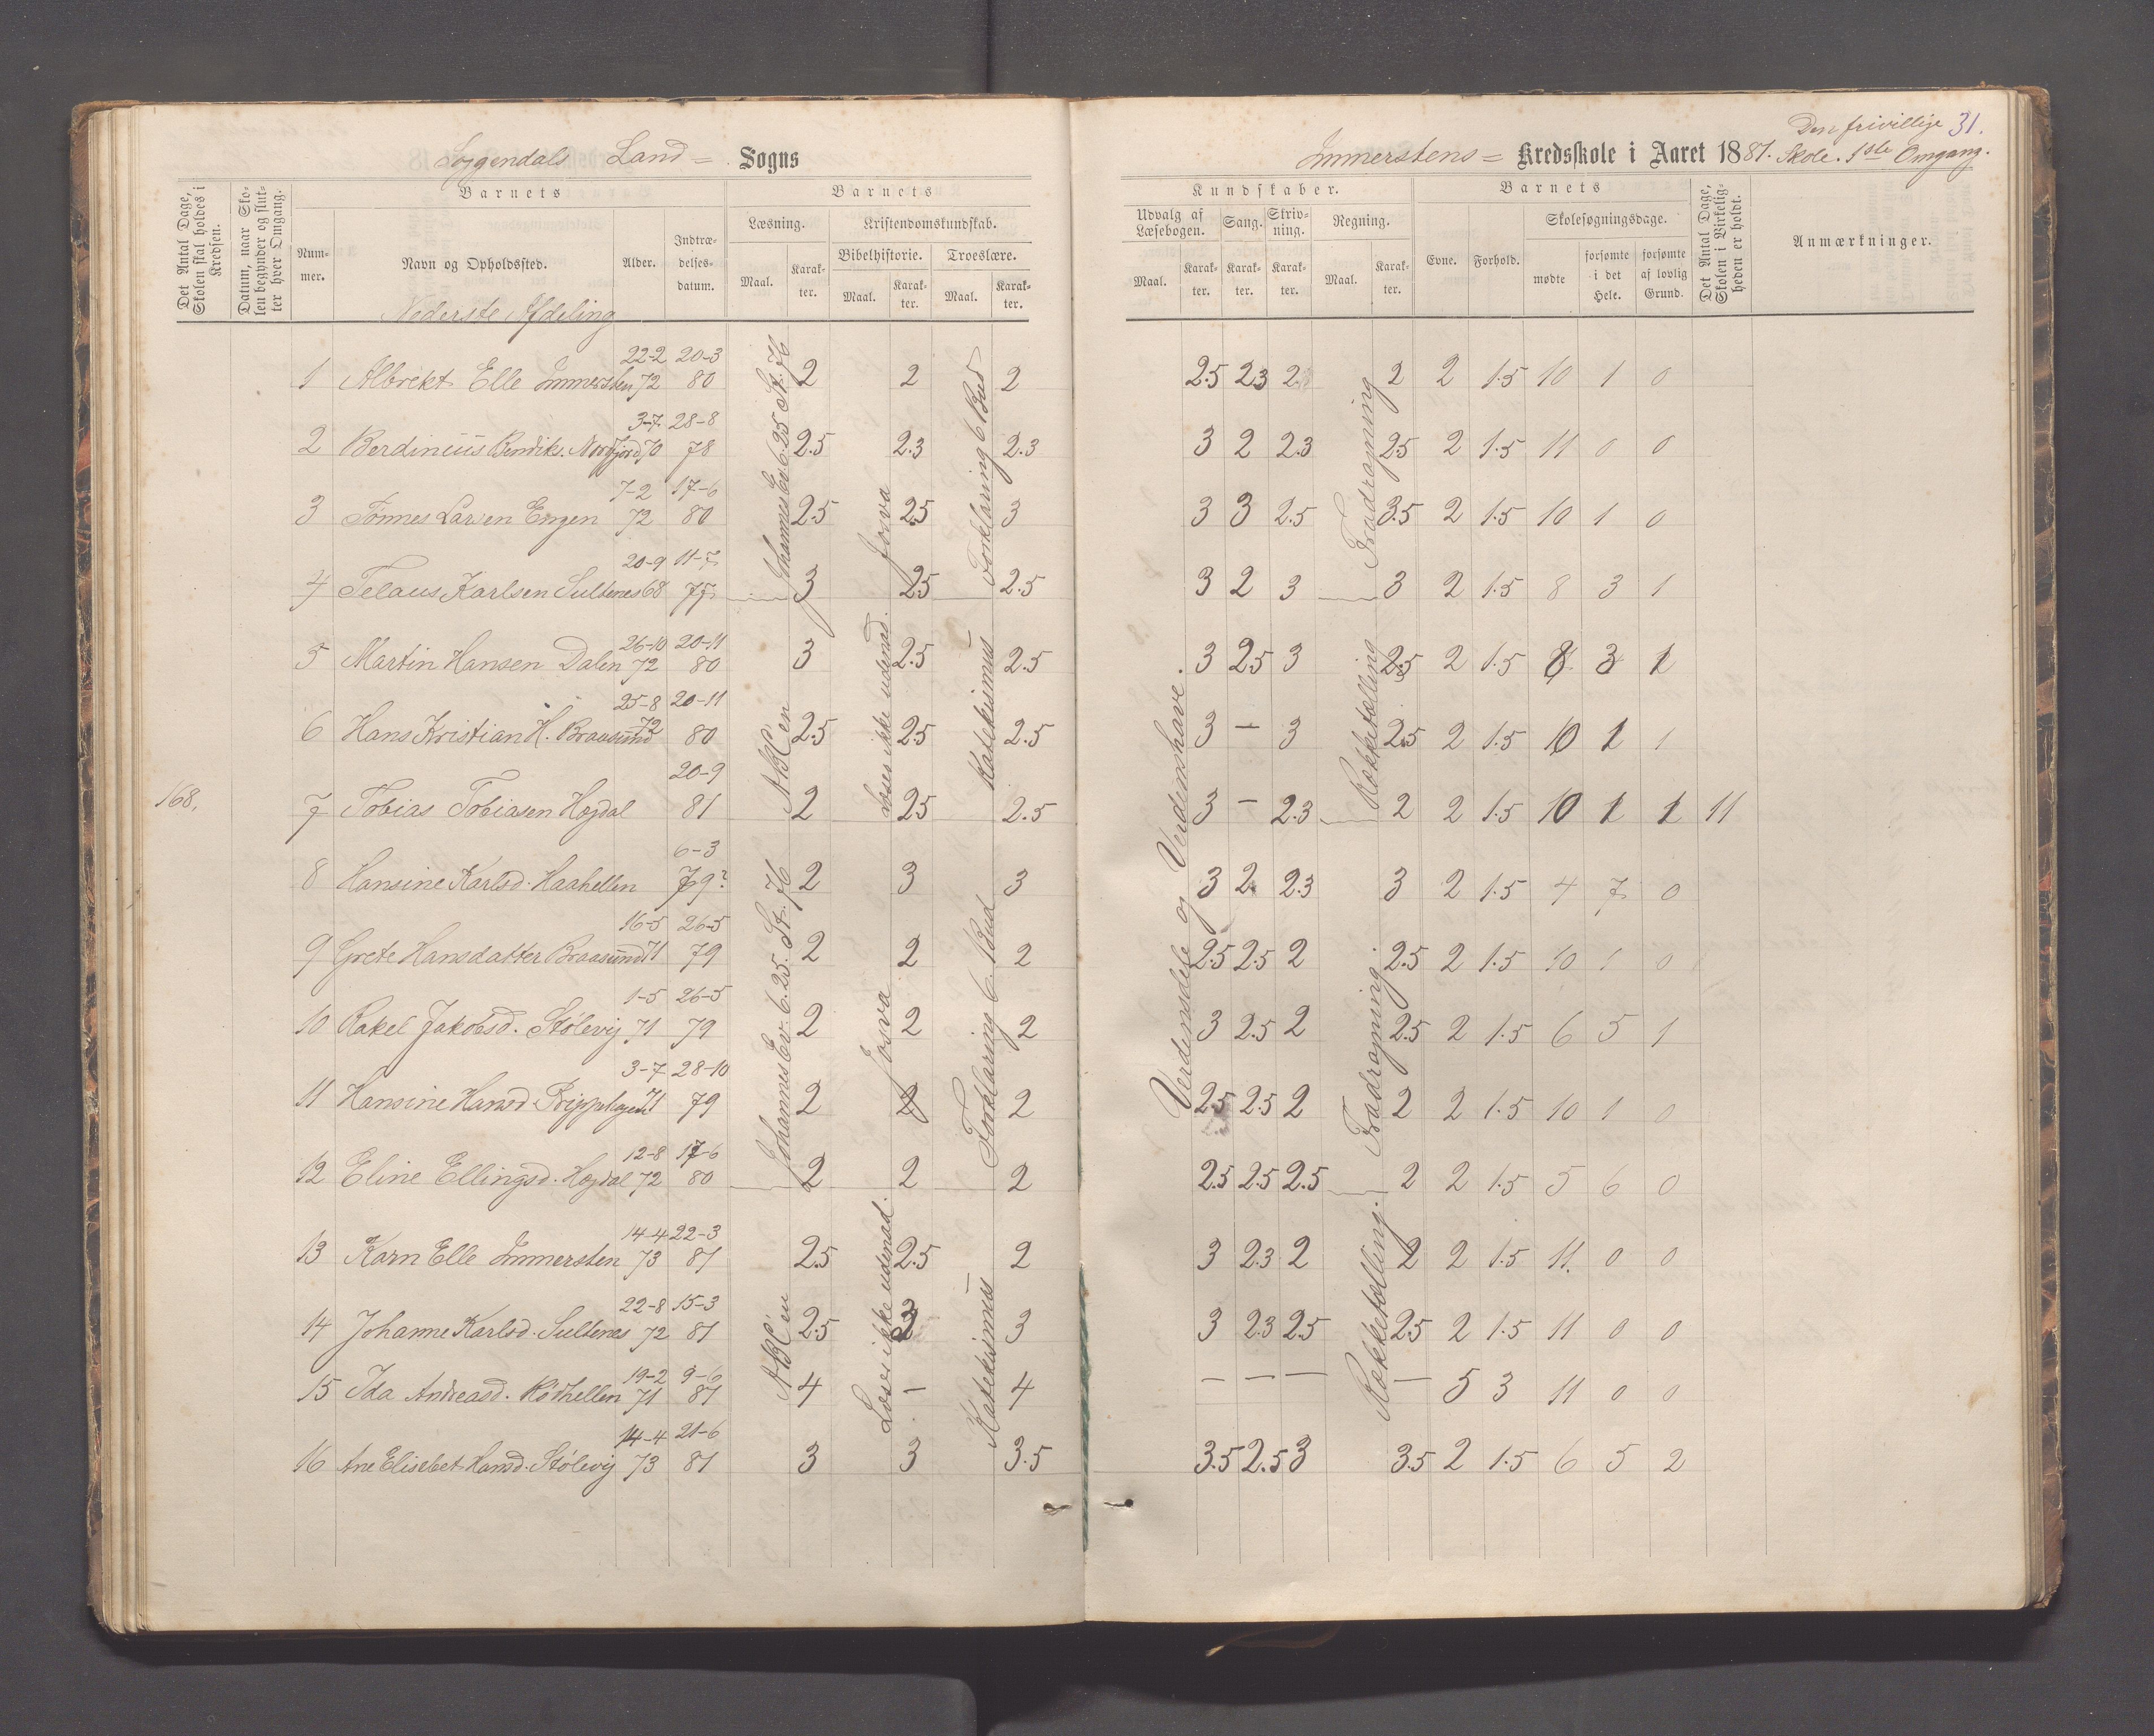 Soggendals Land = Sogns
Immerstens = Kredsskole i Aaret 1881. Den frivillige Skole. 1ste Omgang. 31.
Det Antal Dage, Skolen skal holdes i Kredsen.
Datum, naar Skolen begynder og slutter hver Omgang.
Barnets
Nummer.
Navn og Opholdssted.
Alder.
Indtrædelsesdatum.
Barnets
Læsning.
Maal.
Karakter.
Kristendomskundskab.
Bibelhistorie.
Maal.
Karakter.
Troeslære.
Maal.
Karakter.
Kundskaber.
Udvalg af Læsebogen.
Maal.
Karakter.
Sang.
Karakter.
Skrivning.
Karakter.
Regning.
Maal.
Karakter.
Barnets
Evne.
Forhold.
Skolesøgningsdage.
mødte
forsømte i det Hele.
forsømte af lovlig Grund.
Det Antal Dage, Skolen i Virkeligheden er holdt.
Anmærkninger.
Nederste Afdeling
1 Albrekt Elle Immersten 22-2 72 20-3 80 2 2 2 2.5 2.3 2 2 2 1.5 10 1 0
2 Berdinius Bendiks. Nordfjord 3-7 70 28-8 78 2.5 2.3 2.3 3 2 2.3 2.5 2 1.5 11 0 0
3 Tønnes Larsen Engen 7-2 72 17-6 80 2.5 2.5 3 3 3 2.5 3.5 2 1.5 10 1 0
4 Telaus Karlsen Sultenes 20-9 68 11-7 77 3 2.5 2.5 3 2 3 3 2 1.5 8 3 1
5 Martin Hansen Dalen 26-10 72 20-11 80 3 2.5 2.5 3 2.5 3 2.5 2 1.5 8 3 1
6 Hans Kristian H. Braasund 25-8 72 20-11 80 2.5 2.5 2.5 3 — 3 2.5 2 1.5 10 1 1
168. 7 Tobias Tobiasen Høgdal 20-9 81 2 2.5 2.5 3 — 2.3 2 2 1.5 10 1 1 11
8 Hansine Karlsd. Haahellen 6-3 79? 2 3 3 3 2 2.3 3 2 1.5 4 7 0
9 Grete Hansdatter Braasund 16-5 71 26-5 79 2 2 2 2.5 2.5 2 2.5 2 1.5 10 1 0
10 Rakel Jakobsd. Stølevig 1-5 71 26-5 79 2 2 2 3 2.5 2 2.5 2 1.5 6 5 1
11 Hansine Hansd. 3-7 71 28-10 79 2 2 2 2.5 2.5 2 2 2 1.5 10 1 0
12 Eline Ellingsd. Høgdal 12-8 72 17-6 80 2 2 2 2.5 2.5 2.5 2 2 1.5 5 6 0
13 Karn Elle Immersten 14-4 73 22-3 81 2.5 2.5 2 3 2.3 2 2 2 1.5 11 0 0
14 Johanne Karlsd. Sultenes 22-8 72 15-3 81 2.5 3 3 3 2.3 2.5 2.5 2 1.5 11 0 0
15 Ida Andreasd. Rødhellen 19-2 71 9-6 81 4 — 4 — — — — 5 3 11 0 0
16 Ane Elisebet Hansd. Stølevig 14-4 73 21-6 81 3 3 3.5 3.5 2.5 3 3.5 2 1.5 6 5 2
Johannes Ev 6.25 St. 76
ABC en
Johannes Ev. 6.25. St. 76
ABC en
Josva
Læses ikke udenad.
Josva
Læses ikke udenad.
Forklaring 6 Bud
Katekismus
Forklaring 6. Bud
Katekismus
Verdensdele og Verdenshave.
Fradragning
Rækketælling
Fradragning.
Rækketælling.